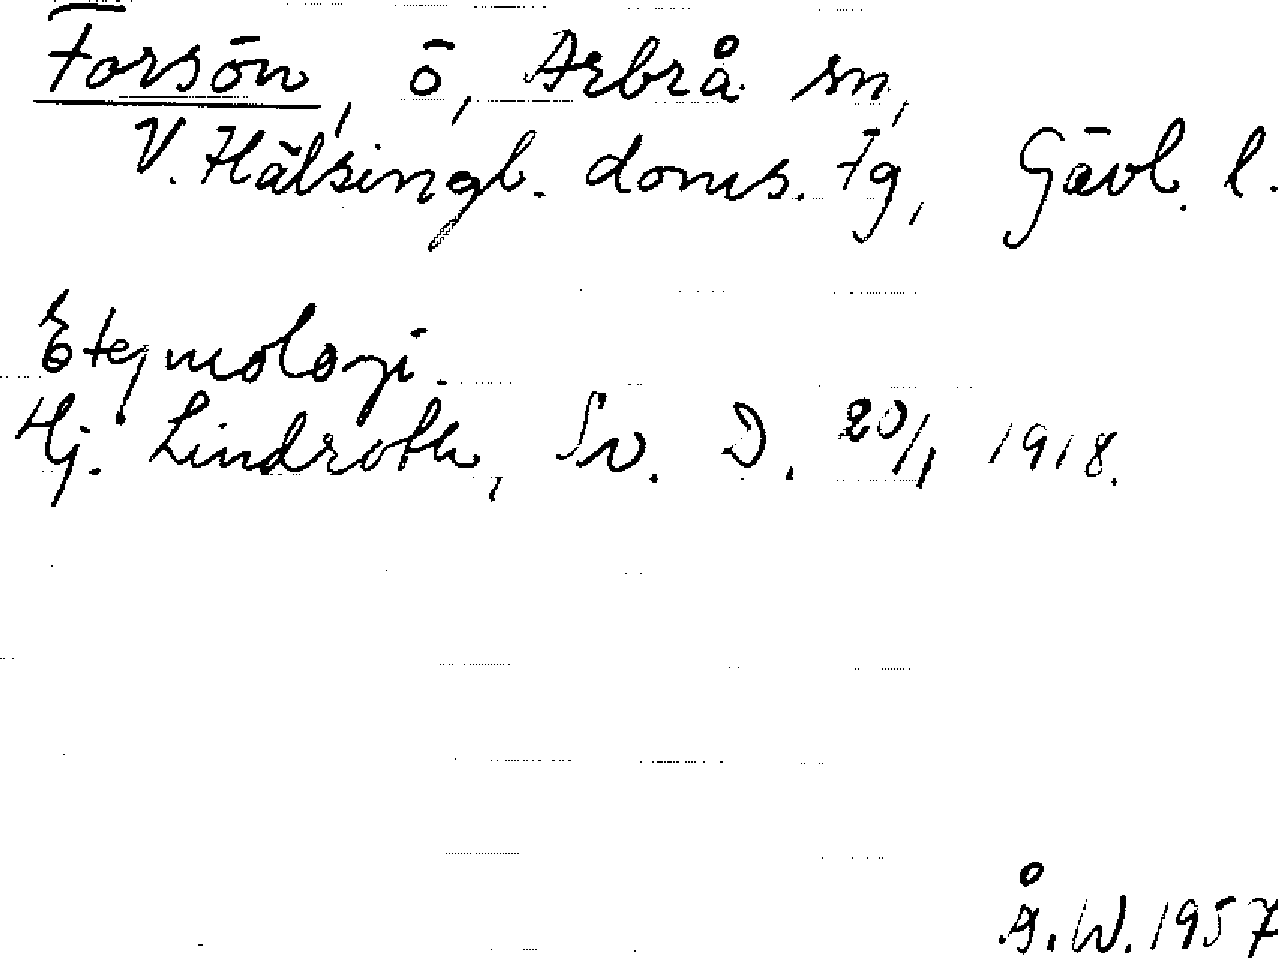 Forsön, ö, Arbrå sn,
V. Hälsingl. doms. fg, Gävl. l.
Etymologi.
Hj. Lindroth, Sv. D. 20/1 1918.
Å.W. 1957